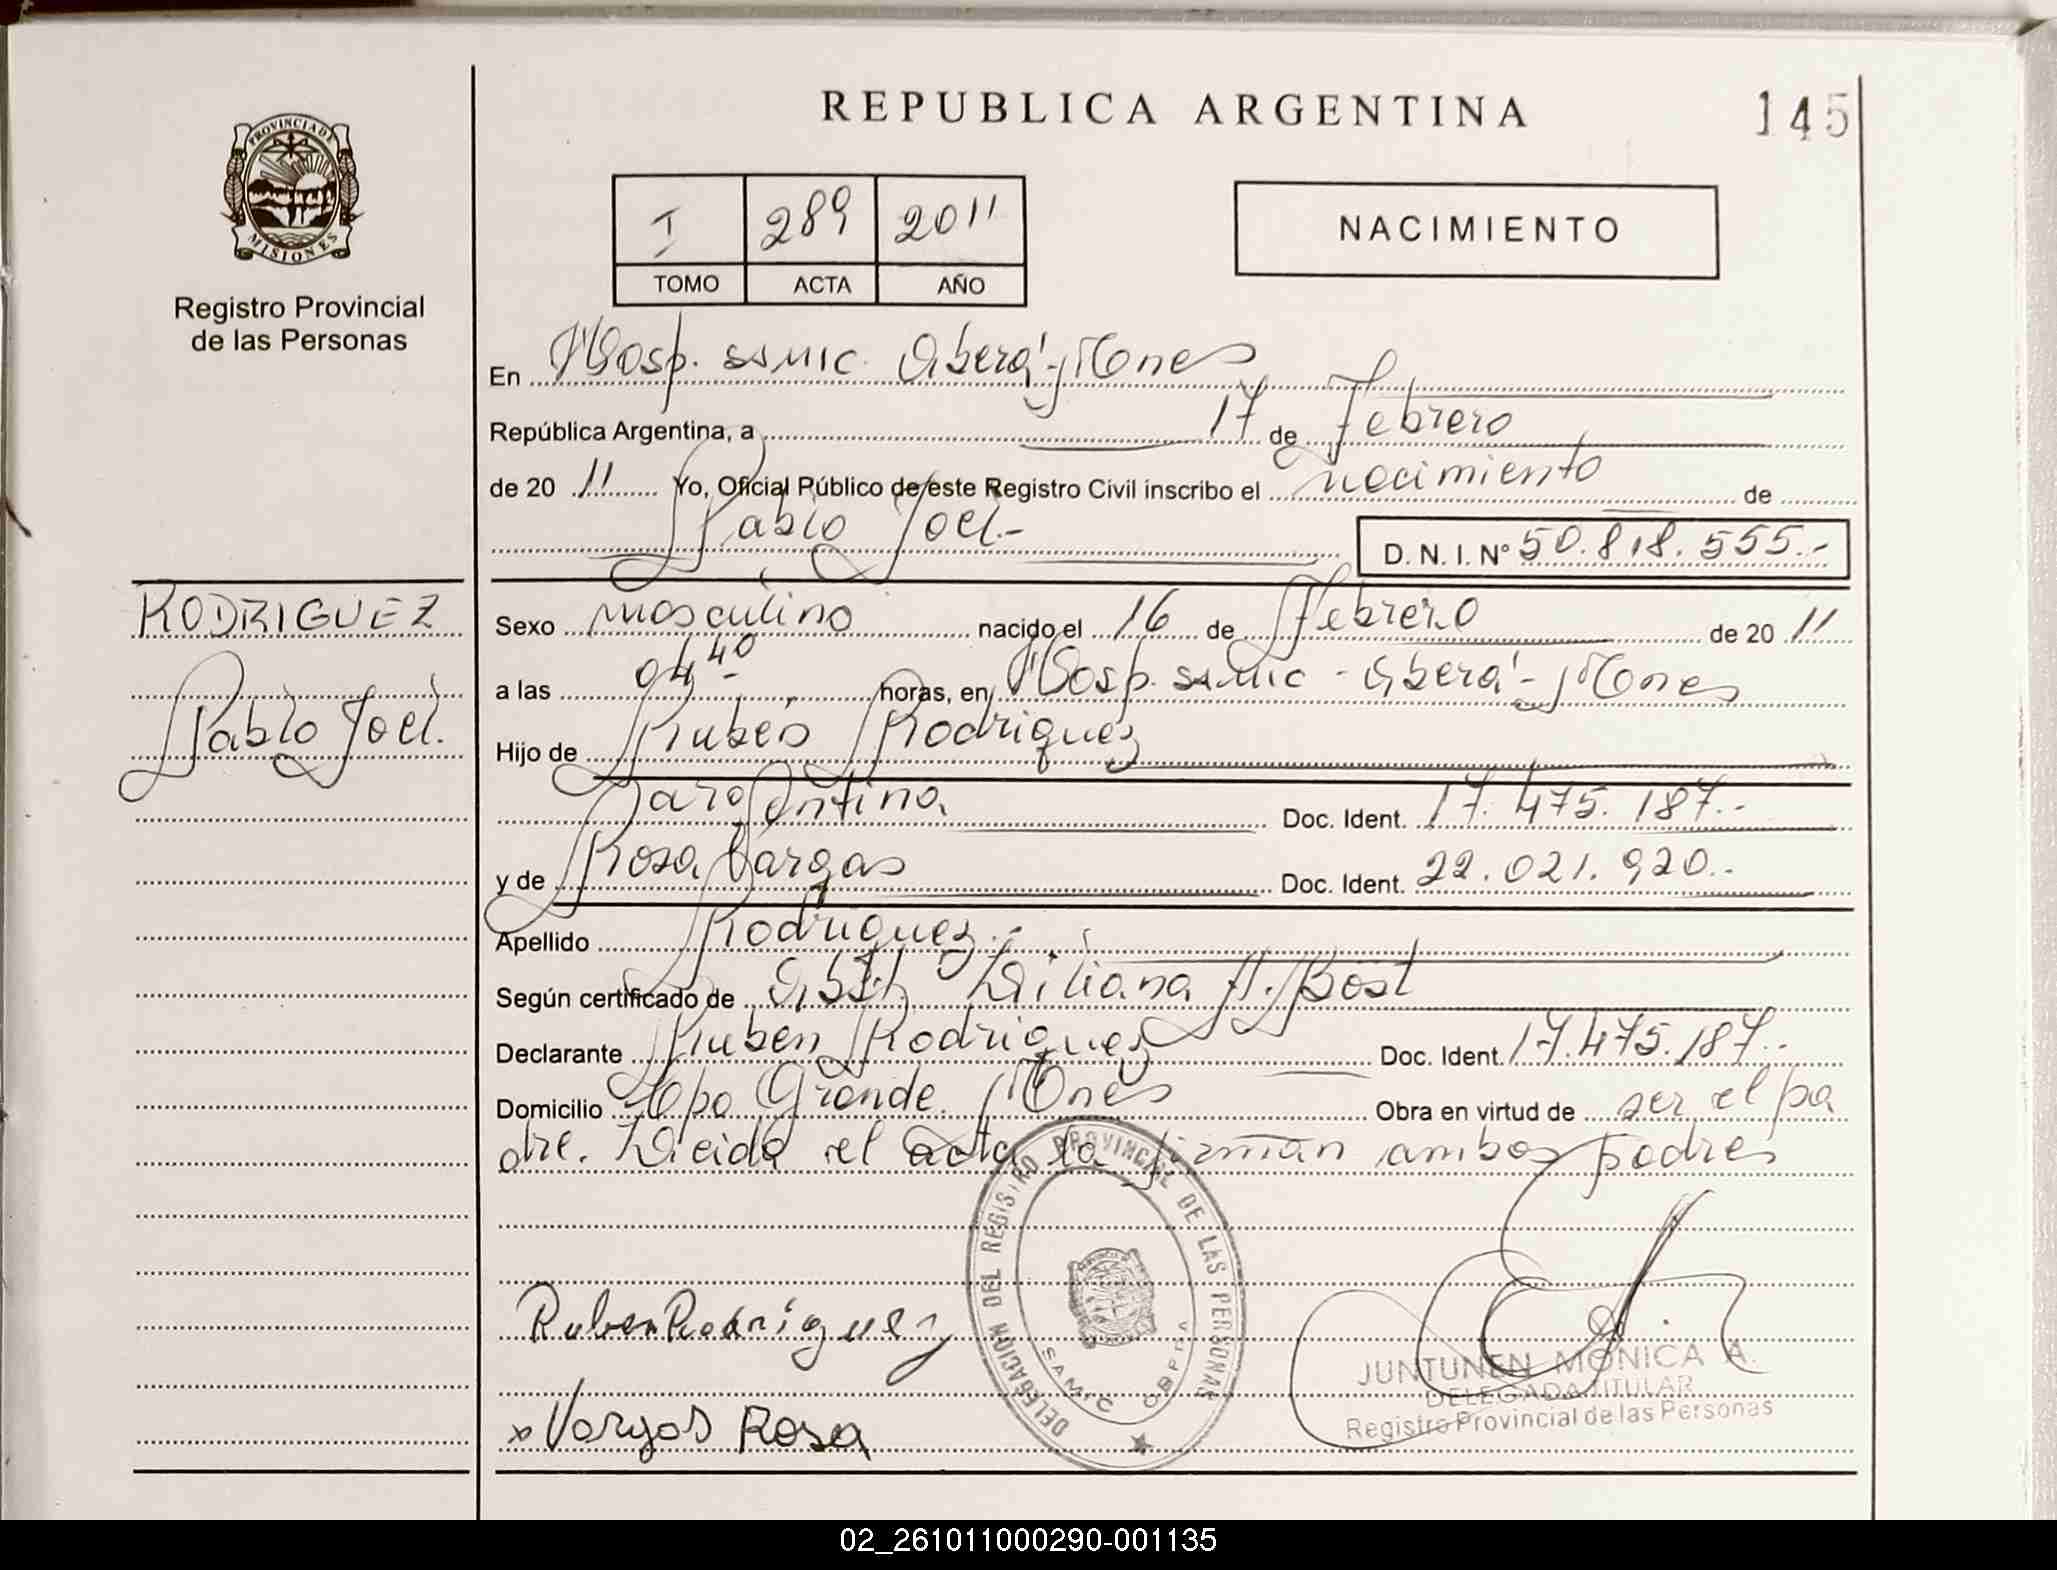 REPUBLICA ARGENTINA
145
PROVINCIA DE
MISIONES
Registro Provincial
de las Personas
I 289 2011
TOMO ACTA AÑO
NACIMIENTO
En Hosp. SAMIC. Oberá-Mones
República Argentina, a 17 de Febrero
de 20 11 Yo, Oficial Público de este Registro Civil inscribo el nacimiento de
Pablo Joel.- D. N. I. N° 50.818.555.-
RODRIGUEZ
Pablo Joel.
Sexo masculino nacido el 16 de Febrero de 20 11
a las 04 40 horas, en Hosp. SAMIC - Oberá - Mones
Hijo de Rubén Rodriguez
argentina Doc. Ident. 17.475.187.-
y de Rosa Vargas Doc. Ident. 22.021.920.-
Apellido Rodriguez.-
Según certificado de Liliana A. Bost
Declarante Ruben Rodriguez Doc. Ident. 17.475.187.-
Domicilio Cpo Grande. Mones Obra en virtud de ser el pa
dre. Leida el acta la firman ambos padres
Ruben Rodriguez
x Vargas Rosa
DELEGACION DEL REGISTRO PROVINCIAL DE LAS PERSONAS
SAMIC OBERA
JUNTUNEN MONICA A.
DELEGADA TITULAR
Registro Provincial de las Personas
02_261011000290-001135